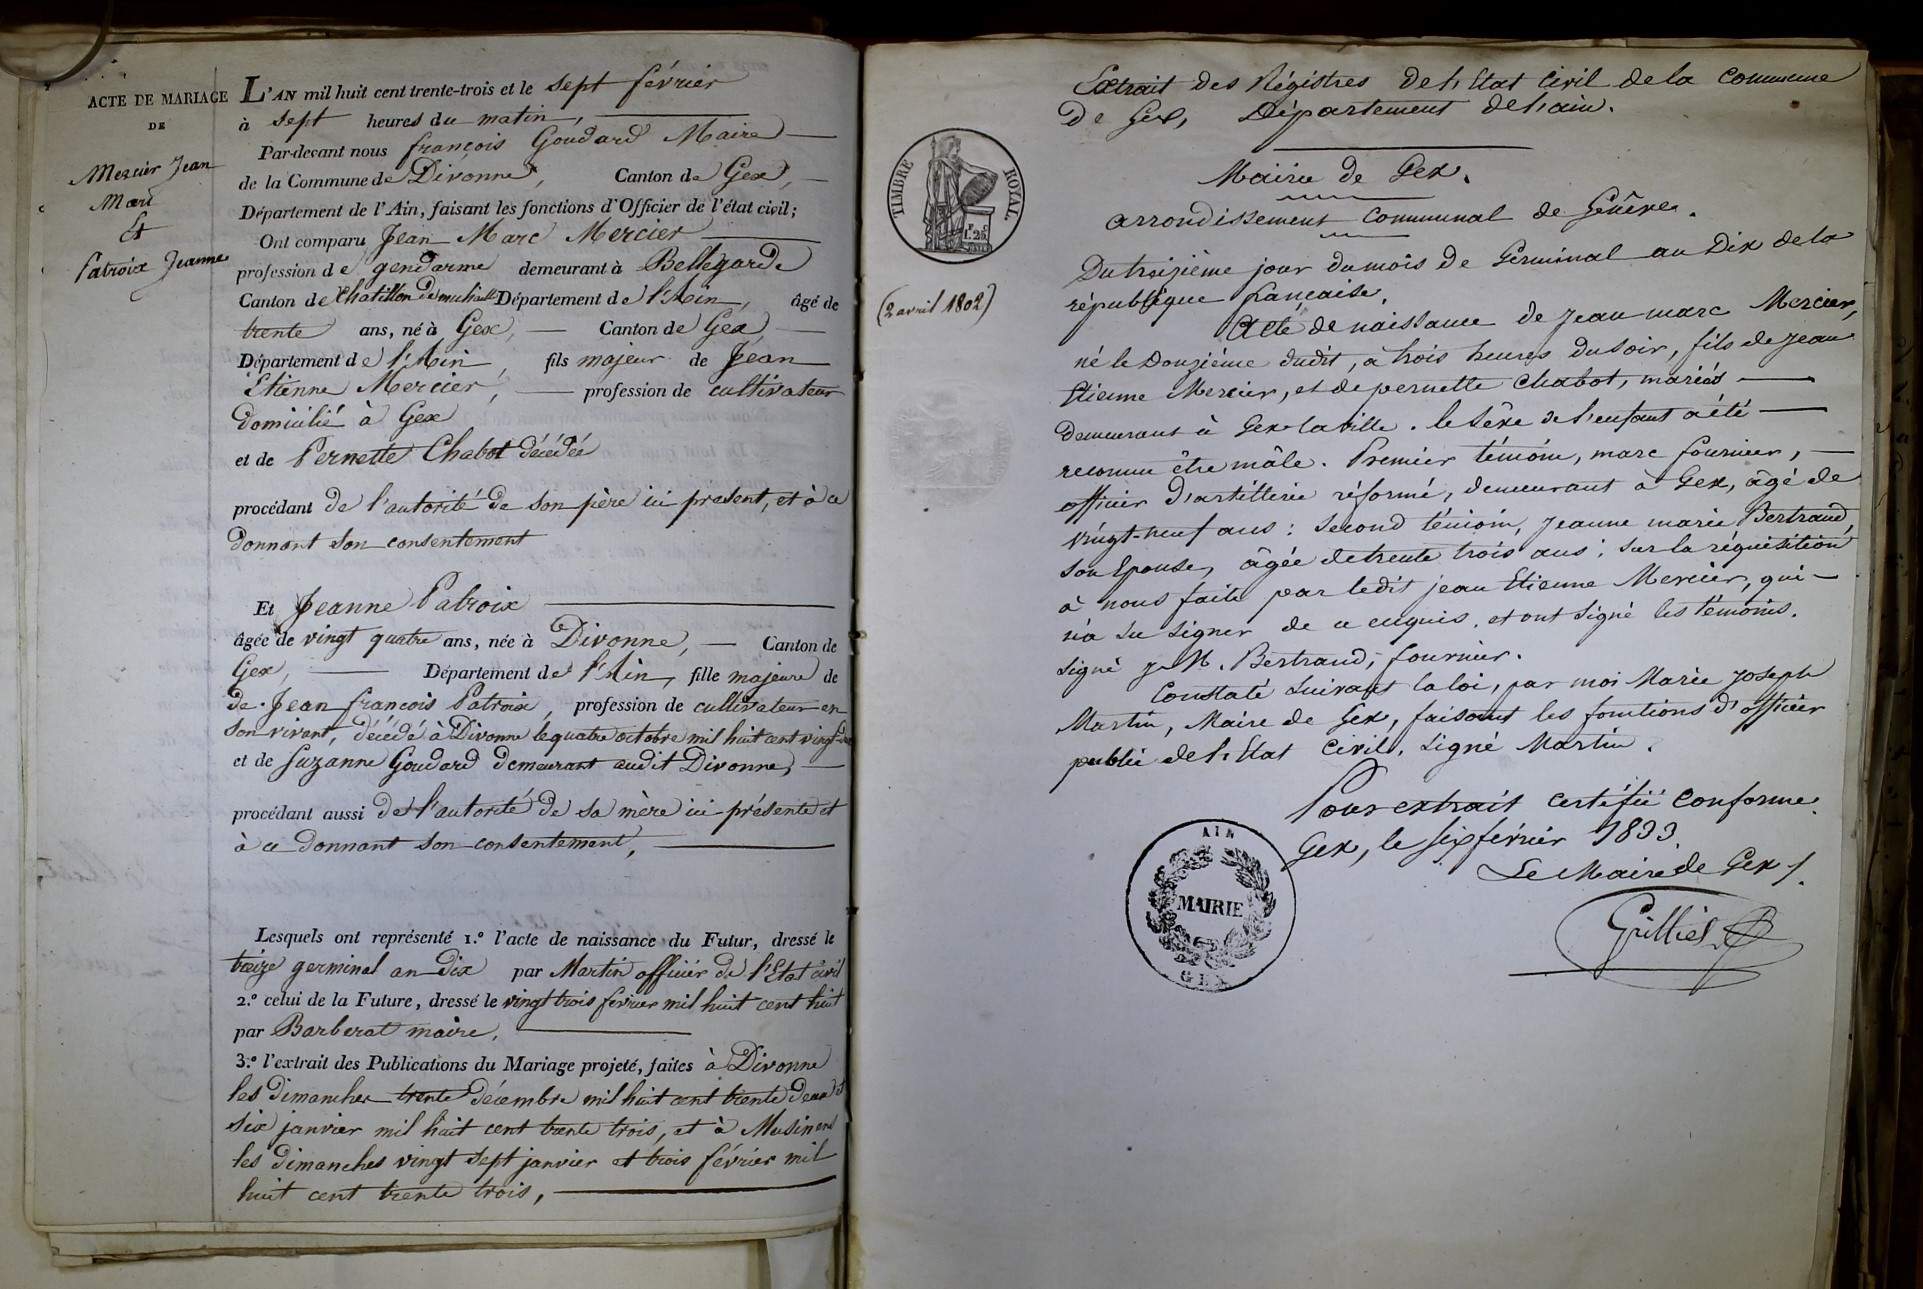 ACTE DE MARIAGE
DE
Mercier Jean
Marc
Et
Patroix Jeanne
L'AN mil huit cent trente-trois et le sept février
à sept heures du matin,
Par-devant nous françois Goudard Maire
de la Commune de Divonne, Canton de Gex,
Département de l'Ain, faisant les fonctions d'Officier de l'état civil;
Ont comparu Jean Marc Mercier
profession de gendarme demeurant à Bellegarde
Canton de Chatillon de michaille Département de l'Ain, âgé de
trente ans, né à Gex, Canton de Gex
Département de l'Ain, fils majeur de Jean
Etienne Mercier, profession de cultivateur
domicilié à Gex
et de Pernette Chabot décédée
procédant de l'autorité de son père ici present, et à ce
donnant son consentement
Et Jeanne Patroix
âgée de vingt quatre ans, née à Divonne, Canton de
Gex, Département de l'Ain, fille majeure de
de Jean françois Patroix, profession de cultivateur en
son vivant, décédé à Divonne le quatre octobre mil huit cent vingt
et de Suzanne Goudard demeurant audit Divonne,
procédant aussi de l'autorité de sa mère ici présente et
à ce donnant son consentement,
Lesquels ont représenté 1.º l'acte de naissance du Futur, dressé le
treize germinal an dix par Martin officier de l'Etat civil
2.º celui de la Future, dressé le vingt trois fevrier mil huit cent huit
par Barberat maire,
3.º l'extrait des Publications du Mariage projeté, faites à Divonne
les dimanches trente décembre mil huit cent trente deux et
six janvier mil huit cent trente trois, et à Musinens
les dimanches vingt sept janvier et trois février mil
huit cent trente trois,
TIMBRE ROYAL
(2 avril 1802)
Extrait des Régistres de l'Etat Civil de la Commune
de Gex, Département de l'ain.
Mairie de Gex.
arrondissement Communal de Genêve.
Du treizième jour du mois de Germinal an Dix de la
république française.
Acte de naissance de Jean marc Mercier,
né le Douzième dudit, à trois heures du soir, fils de Jean
Etienne Mercier, et de pernette Chabot, mariés
demeurant à Gex la ville. le sêxe de l'enfant a été
reconnu être mâle. Premier témoin, marc fournier,
officier d'artillerie réformé, demeurant à Gex, âgé de
vingt-neuf ans: second témoin, Jeanne marie Bertrand,
son Epouse, âgée de trente trois ans; sur la réquisition
à nous faite par ledit jean Etienne Mercier, qui
n'a su signer de ce enquis, et ont signé les témoins.
Signé J. M. Bertrand; fournier.
Constaté suivant la loi, par moi Marie Joseph
Martin, Maire de Gex, faisant les fonctions d'officier
public de l'Etat Civil, signé Martin.
Pour extrait certifié conforme.
Gex, le six février 1833.
Le Maire de Gex
AIN
MAIRIE
GEX